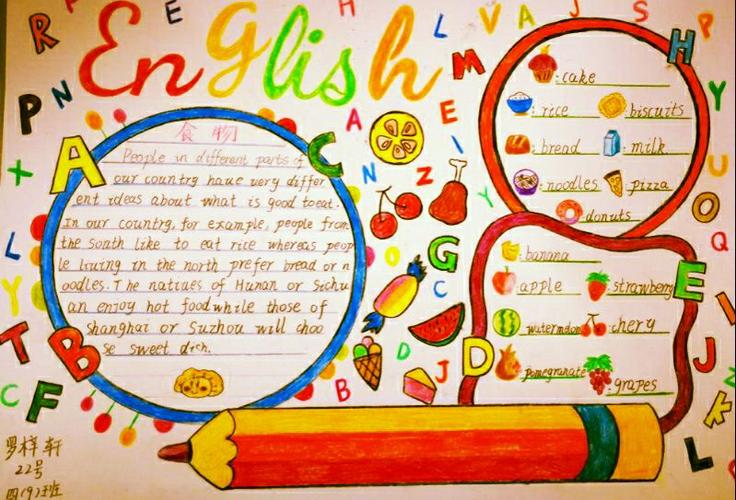 English
食物
People in different parts of
our country have very differ
ent ideas about what is good toeat.
In our country, for example, people from
the south like to eat rice whereas peop
le living in the north prefer bread or n
oodles. The natives of Hunan or Sichu
an enjoy hot food while those of
shanghai or Suzhou will choo
se sweet dich.
:cake
:rice
:biscuits
:bread
:milk
:noodles
:pizza
:donuts
:banana
:apple
:strawberry
:watermelon
:chery
:pomegranate
:grapes
A
B
C
D
E
F
G
H
22号
四(9)班